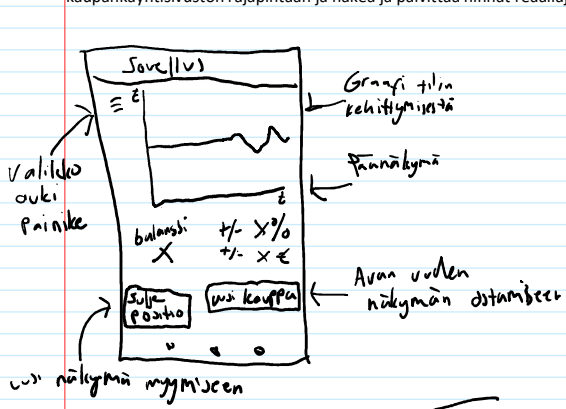 kaupankäyntisivuston rajapintaan ja hakea ja päivittää hinnat reaaliaj
Sovellus
€
t
Graafi tilin
kehittymisestä
Valikko
auki
painike
Päänäkymä
balanssi
X
+/- X%
+/- X €
Sulje
positio
uusi kauppa
Avaa uuden
näkymän ostamiseen
uusi näkymä myymiseen